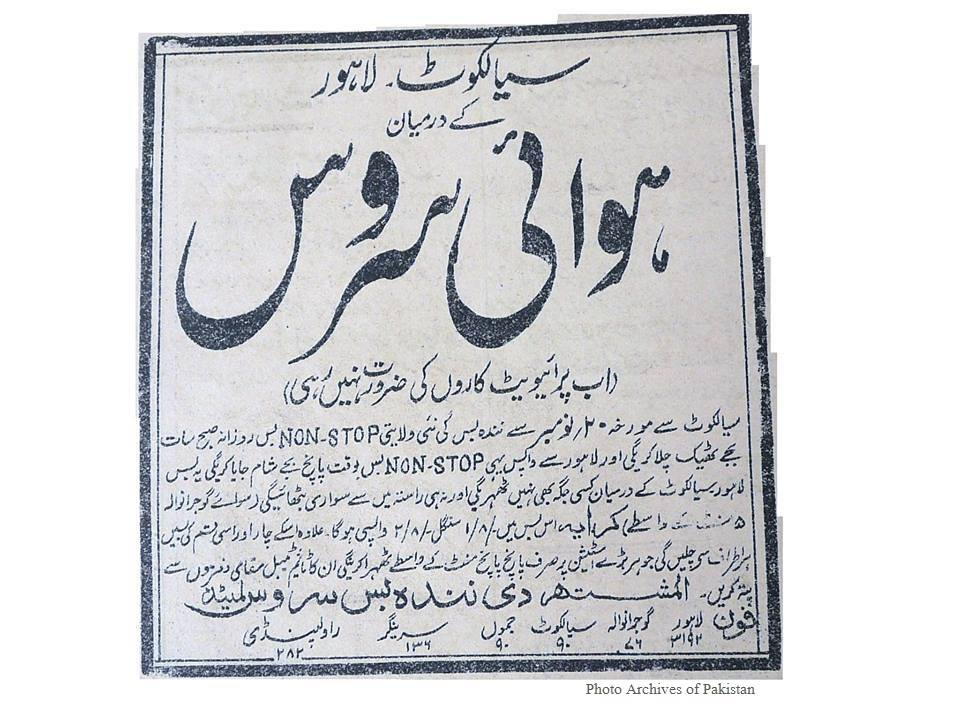 سیالکوٹ۔ لاہور
کے درمیان
ہوائی سروس
(اب پرائیویٹ کاروں کی ضرورت نہیں رہی)
سیالکوٹ سے مورخہ ۲۰/نومبر سے نندہ بس کی نئی ولایتی NON-STOP بس روزانہ صبح سات
بجے ٹھیک چلا کریگی اور لاہور سے واپس یہی NON-STOP بس بوقت پانچ بجے شام جایا کریگی یہ بس
لاہور سیالکوٹ کے درمیان کسی جگہ بھی نہیں ٹھہریگی اور نہ ہی راستہ میں سے سواری بٹھائیگی (سوائے گوجرانوالہ
۵ منٹ کے واسطے) کرایہ اس بس میں ۱/۸/- سنگل ۲/۸/- واپسی ہوگا۔ علاوہ اسکے چار اور اسی قسم کی بسیں
ہر طرف سے چلیں گی جو ہر بڑے اسٹیشن پر صرف پانچ پانچ منٹ کے واسطے ٹھہرا کرینگی ان کا ٹائم ٹیبل مقامی دفتروں سے
پتہ کریں۔ المشتہر دی نندہ بس سروس لمیٹڈ
فون لاہور ۳۱۹۲ گوجرانوالہ ۷۶ سیالکوٹ ۹۰ جموں ۹۰ سرینگر ۱۳۶ راولپنڈی ۲۸۲
Photo Archives of Pakistan